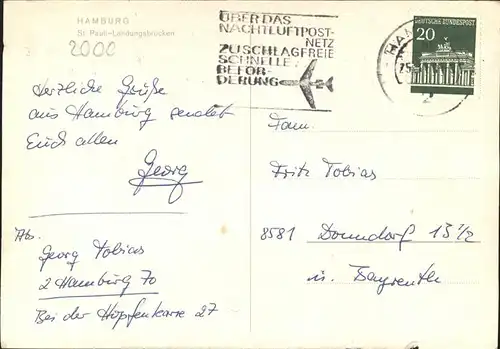 HAMBURG
St. Pauli-Landungsbrücken
2000
ÜBER DAS
NACHTLUFTPOST-
NETZ
ZUSCHLAGFREIE
SCHNELLE
BEFÖR-
DERUNG
DEUTSCHE BUNDESPOST
20
Herzliche Grüße
aus Hamburg sendet
Euch allen
Georg
Fam.
Fritz Tobias
8581 Donndorf 13 1/2
Bayreuth
Abs.
Georg Tobias
2 Hamburg 70
Bei der Hopfenkarre 27